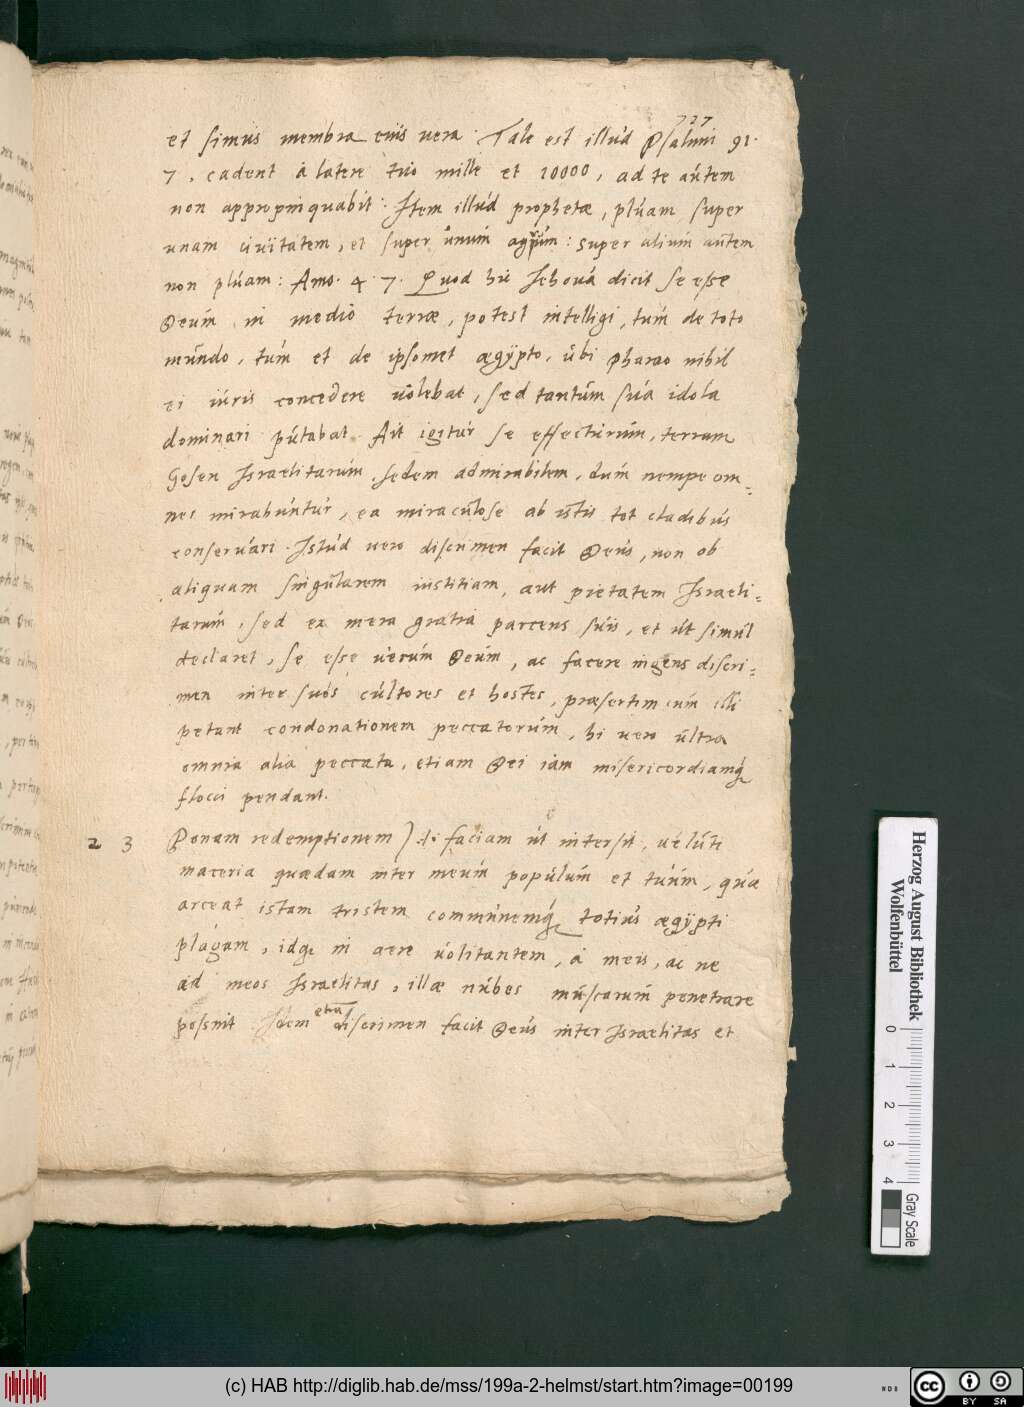 727
et simus membra eius vera. Tale est illud Psalmi 91.
7. cadent à latere tuo mille et 10000, ad te autem
non appropinquabit. Item illud prophetæ, pluam super
unam ciuitatem, et super unum agrum: super alium autem
non pluam: Amo. 4. 7. Quod hic Iehoua dicit se esse
Deum in medio terræ, potest intelligi, tum de toto
mundo, tum et de ipsomet ægypto, ubi pharao nihil
ei iuris concedere uolebat, sed tantum sua idola
dominari putabat. Ait igitur se effecturum, terram
Gosen Israelitarum, sedem admirabilem, dum nempe om=
nes mirabuntur, ea miraculose ab istis tot cladibus
conseruari. Istud vero discrimen facit Deus, non ob
aliquam singularem iustitiam, aut pietatem Israeli=
tarum, sed ex mera gratia parcens suis, et ut simul
declaret, se esse uerum Deum, ac facere ingens discri=
men inter suos cultores et hostes, præsertim cum illi
petant condonationem peccatorum, hi vero ultra
omnia alia peccata, etiam Dei iam misericordiamq
flocci pendant.
2 3 Ponam redemptionem) .i. faciam ut intersit, uéluti
maceria quædam inter meum populum et tuum, qua
arceat istam tristem communemq totius ægypti
plagam, idq in aere uolitantem, à meis, ac ne
ad meos Israelitas, illæ nubes muscarum penetrare
possint. Idem etiā discrimen facit Deus inter Israelitas et
Herzog August Bibliothek
Wolfenbüttel
0 1 2 3 4
Gray Scale
(c) HAB http://diglib.hab.de/mss/199a-2-helmst/start.htm?image=00199
cc BY SA